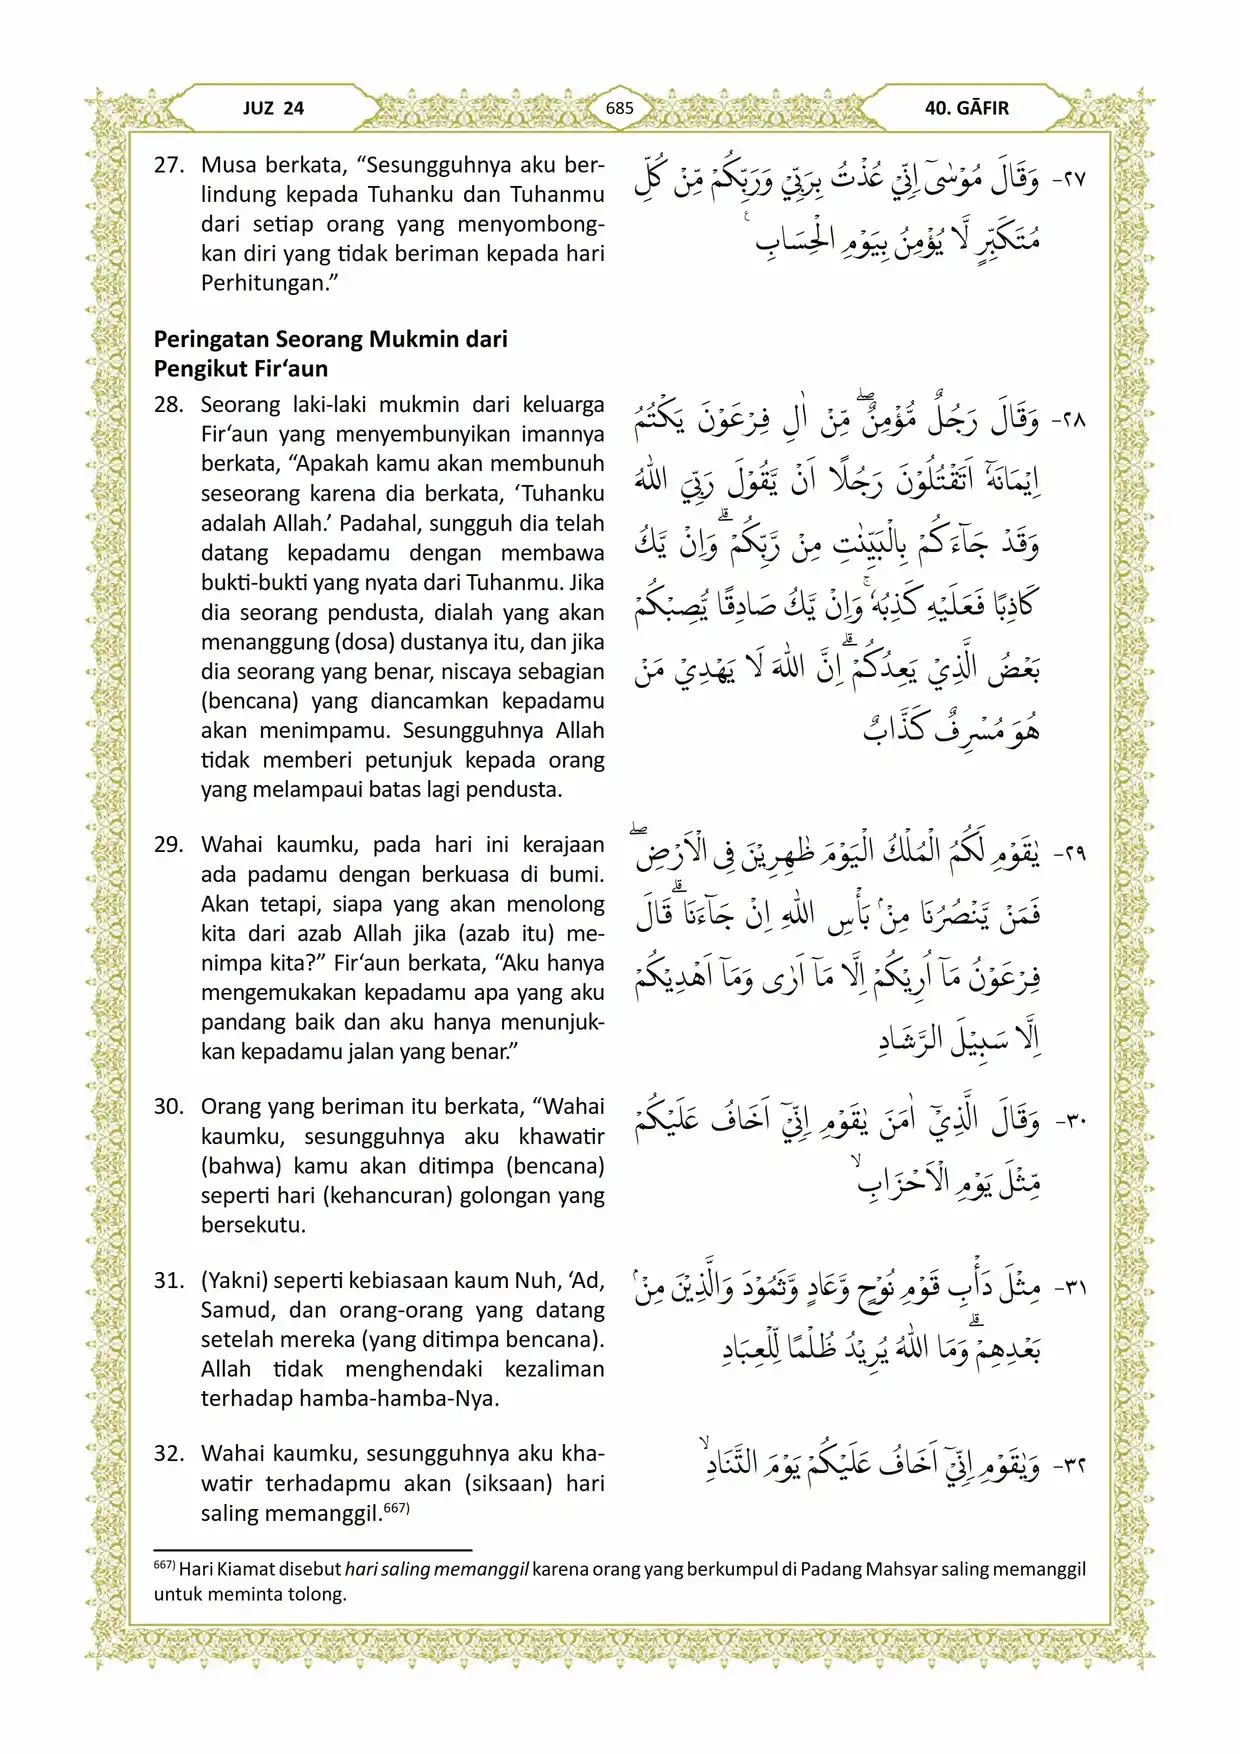 JUZ 24
685
40. GĀFIR
27. Musa berkata, “Sesungguhnya aku ber-
lindung kepada Tuhanku dan Tuhanmu
dari setiap orang yang menyombong-
kan diri yang tidak beriman kepada hari
Perhitungan.”
٢٧- وَقَالَ مُوْسٰىٓ اِنِّيْ عُذْتُ بِرَبِّيْ وَرَبِّكُمْ مِّنْ كُلِّ
مُتَكَبِّرٍ لَّا يُؤْمِنُ بِيَوْمِ الْحِسَابِ ࣖ
Peringatan Seorang Mukmin dari
Pengikut Fir‘aun
28. Seorang laki-laki mukmin dari keluarga
Fir‘aun yang menyembunyikan imannya
berkata, “Apakah kamu akan membunuh
seseorang karena dia berkata, ‘Tuhanku
adalah Allah.’ Padahal, sungguh dia telah
datang kepadamu dengan membawa
bukti-bukti yang nyata dari Tuhanmu. Jika
dia seorang pendusta, dialah yang akan
menanggung (dosa) dustanya itu, dan jika
dia seorang yang benar, niscaya sebagian
(bencana) yang diancamkan kepadamu
akan menimpamu. Sesungguhnya Allah
tidak memberi petunjuk kepada orang
yang melampaui batas lagi pendusta.
٢٨- وَقَالَ رَجُلٌ مُّؤْمِنٌۖ مِّنْ اٰلِ فِرْعَوْنَ يَكْتُمُ
اِيْمَانَهٗٓ اَتَقْتُلُوْنَ رَجُلًا اَنْ يَّقُوْلَ رَبِّيَ اللّٰهُ
وَقَدْ جَاۤءَكُمْ بِالْبَيِّنٰتِ مِنْ رَّبِّكُمْ ۗوَاِنْ يَّكُ
كَاذِبًا فَعَلَيْهِ كَذِبُهٗ ۚوَاِنْ يَّكُ صَادِقًا يُّصِبْكُمْ
بَعْضُ الَّذِيْ يَعِدُكُمْ ۗاِنَّ اللّٰهَ لَا يَهْدِيْ مَنْ
هُوَ مُسْرِفٌ كَذَّابٌ
29. Wahai kaumku, pada hari ini kerajaan
ada padamu dengan berkuasa di bumi.
Akan tetapi, siapa yang akan menolong
kita dari azab Allah jika (azab itu) me-
nimpa kita?” Fir‘aun berkata, “Aku hanya
mengemukakan kepadamu apa yang aku
pandang baik dan aku hanya menunjuk-
kan kepadamu jalan yang benar.”
٢٩- يٰقَوْمِ لَكُمُ الْمُلْكُ الْيَوْمَ ظٰهِرِيْنَ فِى الْاَرْضِۖ
فَمَنْ يَّنْصُرُنَا مِنْۢ بَأْسِ اللّٰهِ اِنْ جَاۤءَنَا ۗقَالَ
فِرْعَوْنُ مَآ اُرِيْكُمْ اِلَّا مَآ اَرٰى وَمَآ اَهْدِيْكُمْ
اِلَّا سَبِيْلَ الرَّشَادِ
30. Orang yang beriman itu berkata, “Wahai
kaumku, sesungguhnya aku khawatir
(bahwa) kamu akan ditimpa (bencana)
seperti hari (kehancuran) golongan yang
bersekutu.
٣٠- وَقَالَ الَّذِيْٓ اٰمَنَ يٰقَوْمِ اِنِّيْٓ اَخَافُ عَلَيْكُمْ
مِّثْلَ يَوْمِ الْاَحْزَابِۙ
31. (Yakni) seperti kebiasaan kaum Nuh, ‘Ad,
Samud, dan orang-orang yang datang
setelah mereka (yang ditimpa bencana).
Allah tidak menghendaki kezaliman
terhadap hamba-hamba-Nya.
٣١- مِثْلَ دَأْبِ قَوْمِ نُوْحٍ وَّعَادٍ وَّثَمُوْدَ وَالَّذِيْنَ مِنْۢ
بَعْدِهِمْ ۗوَمَا اللّٰهُ يُرِيْدُ ظُلْمًا لِّلْعِبَادِ
32. Wahai kaumku, sesungguhnya aku kha-
watir terhadapmu akan (siksaan) hari
saling memanggil.667)
٣٢- وَيٰقَوْمِ اِنِّيْٓ اَخَافُ عَلَيْكُمْ يَوْمَ التَّنَادِۙ
667) Hari Kiamat disebut hari saling memanggil karena orang yang berkumpul di Padang Mahsyar saling memanggil
untuk meminta tolong.